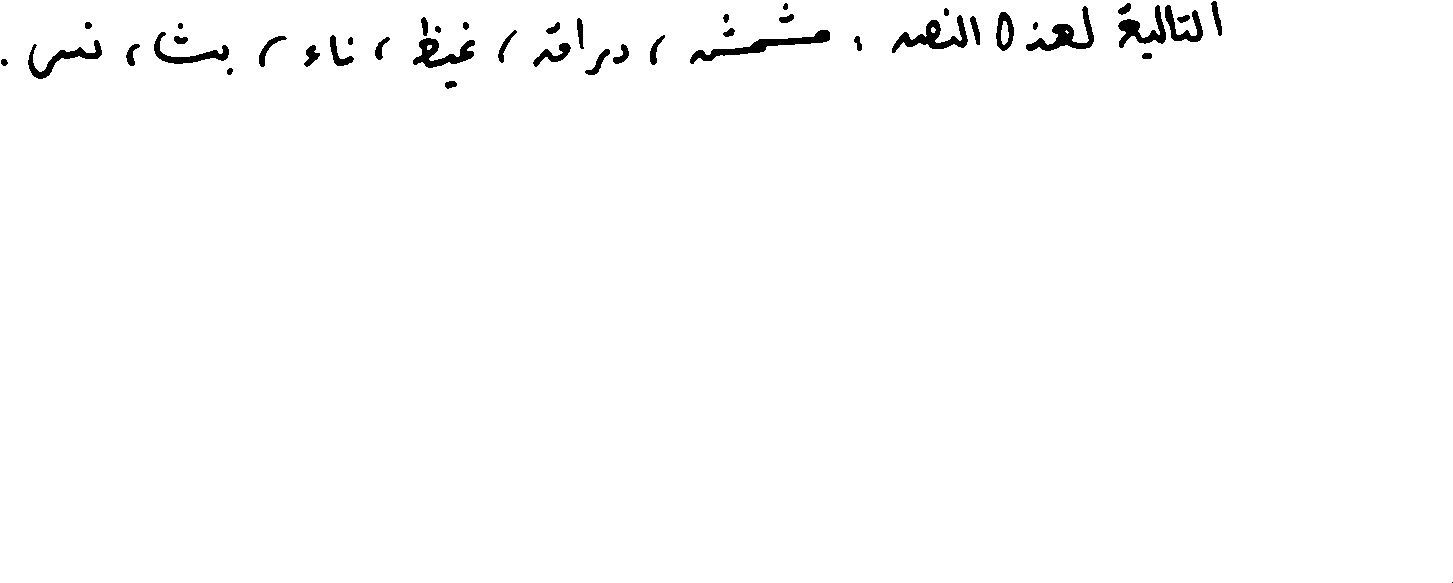 التالية لهذه النص : مشمش ، دراق ، غيظ ، ناء ، بث ، نس .